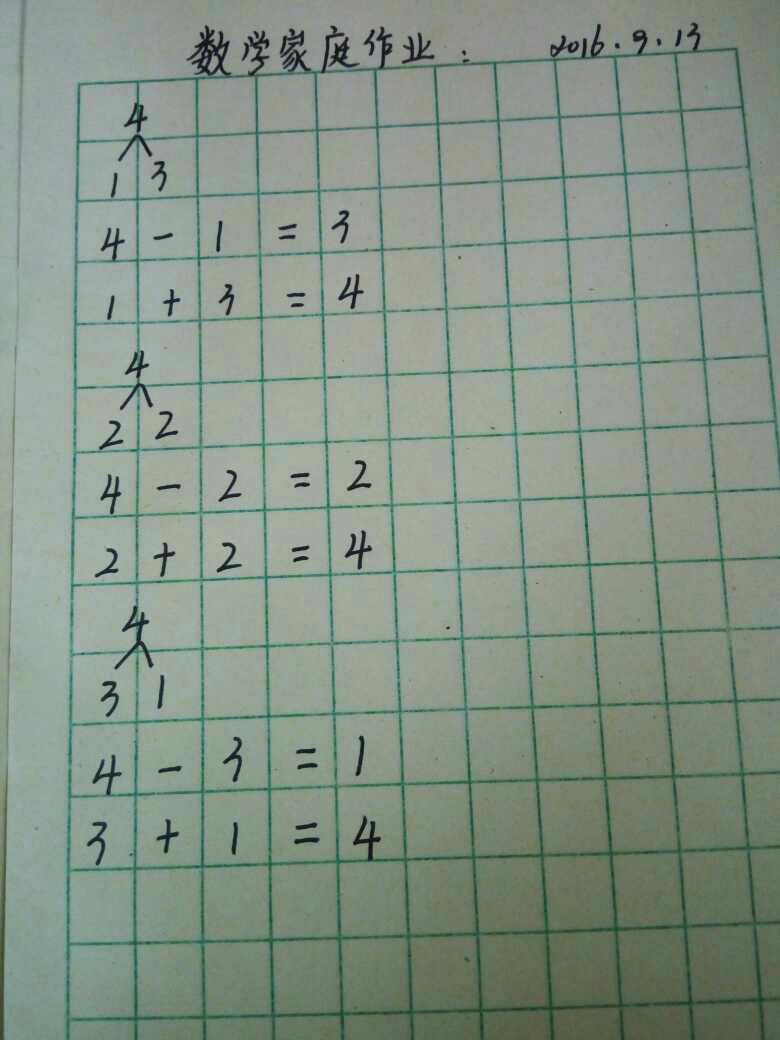 数学家庭作业： 2016.9.13
4
1 3
4 - 1 = 3
1 + 3 = 4
4
2 2
4 - 2 = 2
2 + 2 = 4
4
3 1
4 - 3 = 1
3 + 1 = 4